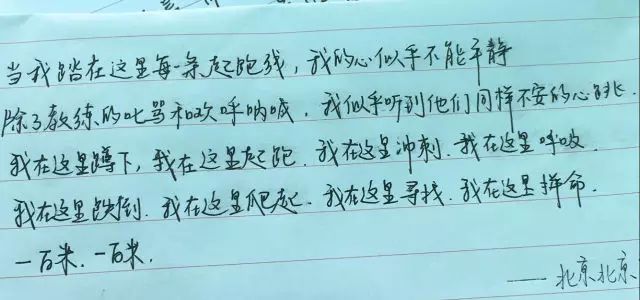 当我踏在这里每一条起跑线，我的心似乎不能平静
除了教练的叱骂和欢呼呐喊，我似乎听到他们同样不安的心跳.
我在这里蹲下，我在这里起跑.我在这里冲刺.我在这里呼吸
我在这里跌倒.我在这里爬起.我在这里寻找.我在这里拼命.
一百米.一百米.
——北京北京